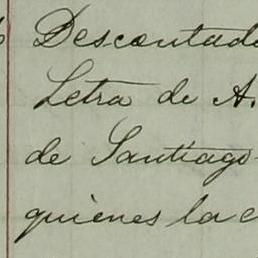 Descontado
Letra de A.
de Santiago
quienes la